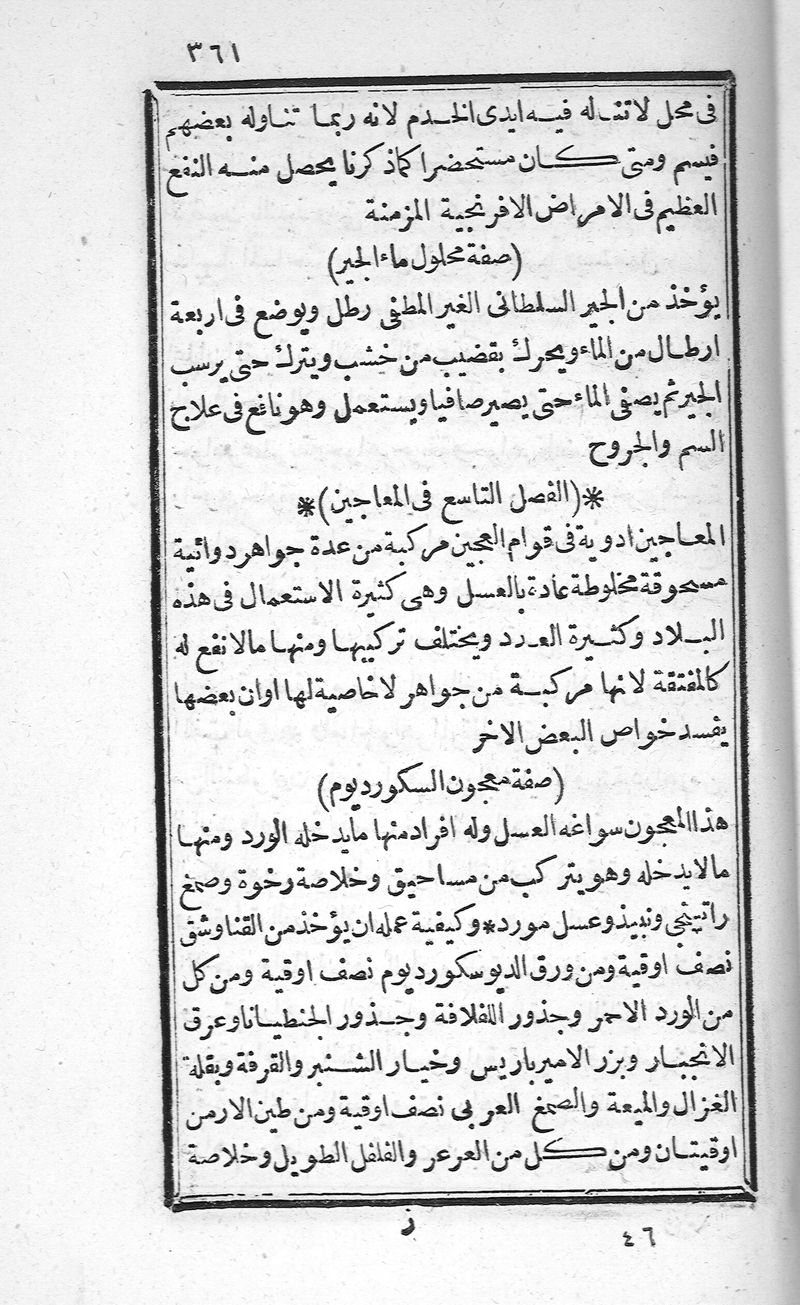 ٣٦١
فى محل لا تناله فيه ايدى الخدم لانه ربما تناوله بعضهم
فيسم ومتى كان مستحضرا كما ذكرنا يحصل منه النفع
العظيم فى الامراض الافرنجية المزمنة
(صفة محلول ماء الجير)
يؤخذ من الجير السلطانى الغير المطفى رطل ويوضع فى اربعة
ارطال من الماء ويحرك بقضيب من خشب ويترك حتى يرسب
الجير ثم يصفى الماء حتى يصير صافيا ويستعمل وهو نافع فى علاج
السم والجروح
*(الفصل التاسع فى المعاجين)*
المعاجين ادوية فى قوام العجين مركبة من عدة جواهر دوائية
مسحوقة مخلوطة عادة بالعسل وهى كثيرة الاستعمال فى هذه
البلاد وكثيرة العدد ويختلف تركيبها ومنها مالا نفع له
كالمفتقة لانها مركبة من جواهر لا خاصية لها اوان بعضها
يفسد خواص البعض الاخر
(صفة معجون السكورديوم)
هذا المعجون سواغه العسل وله افراد منها ما يدخله الورد ومنها
مالا يدخله وهو يتركب من مساحيق وخلاصة رخوة وصمغ
راتينجى ونبيذ وعسل مورد * وكيفية عمله ان يؤخذ من القناوشق
نصف اوقية ومن ورق الديوسكورديوم نصف اوقية ومن كل
من الورد الاحمر وجذور اللفلافة وجذور الجنطيانا وعرق
الانجبار وبزر الاميرباريس وخيار الشنبر والقرفة وبقلة
الغزال والميعة والصمغ العربى نصف اوقية ومن طين الارمن
اوقيتان ومن كل من العرعر والفلفل الطويل وخلاصة
٤٦